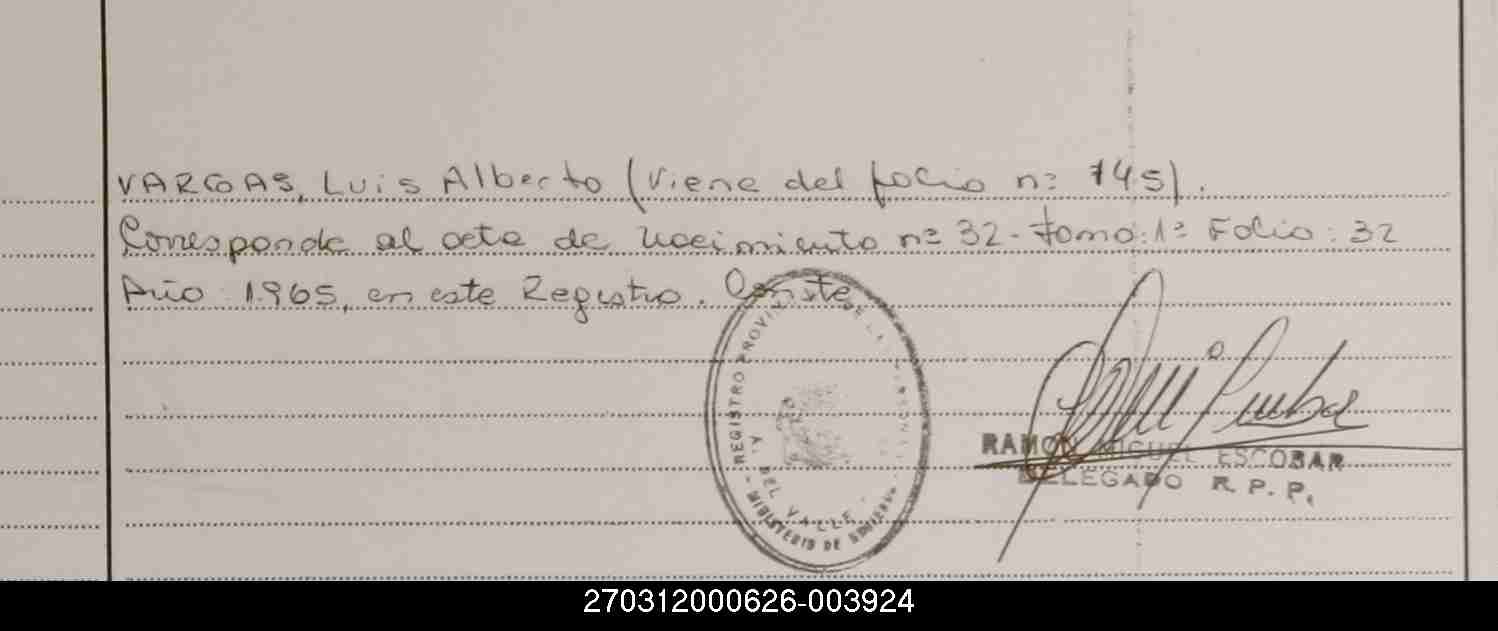 VARGAS, Luis Alberto (Viene del folio nº 145).
Corresponde al acta de Nacimiento nº 32 - Tomo: 1º Folio: 32
Año 1.965, en este Registro. Conste
REGISTRO PROVIN DE LA
V. DEL VALLE
MINISTERIO DE GOBIERNO
RAMON MIGUEL ESCOBAR
DELEGADO R. P. P.
270312000626-003924